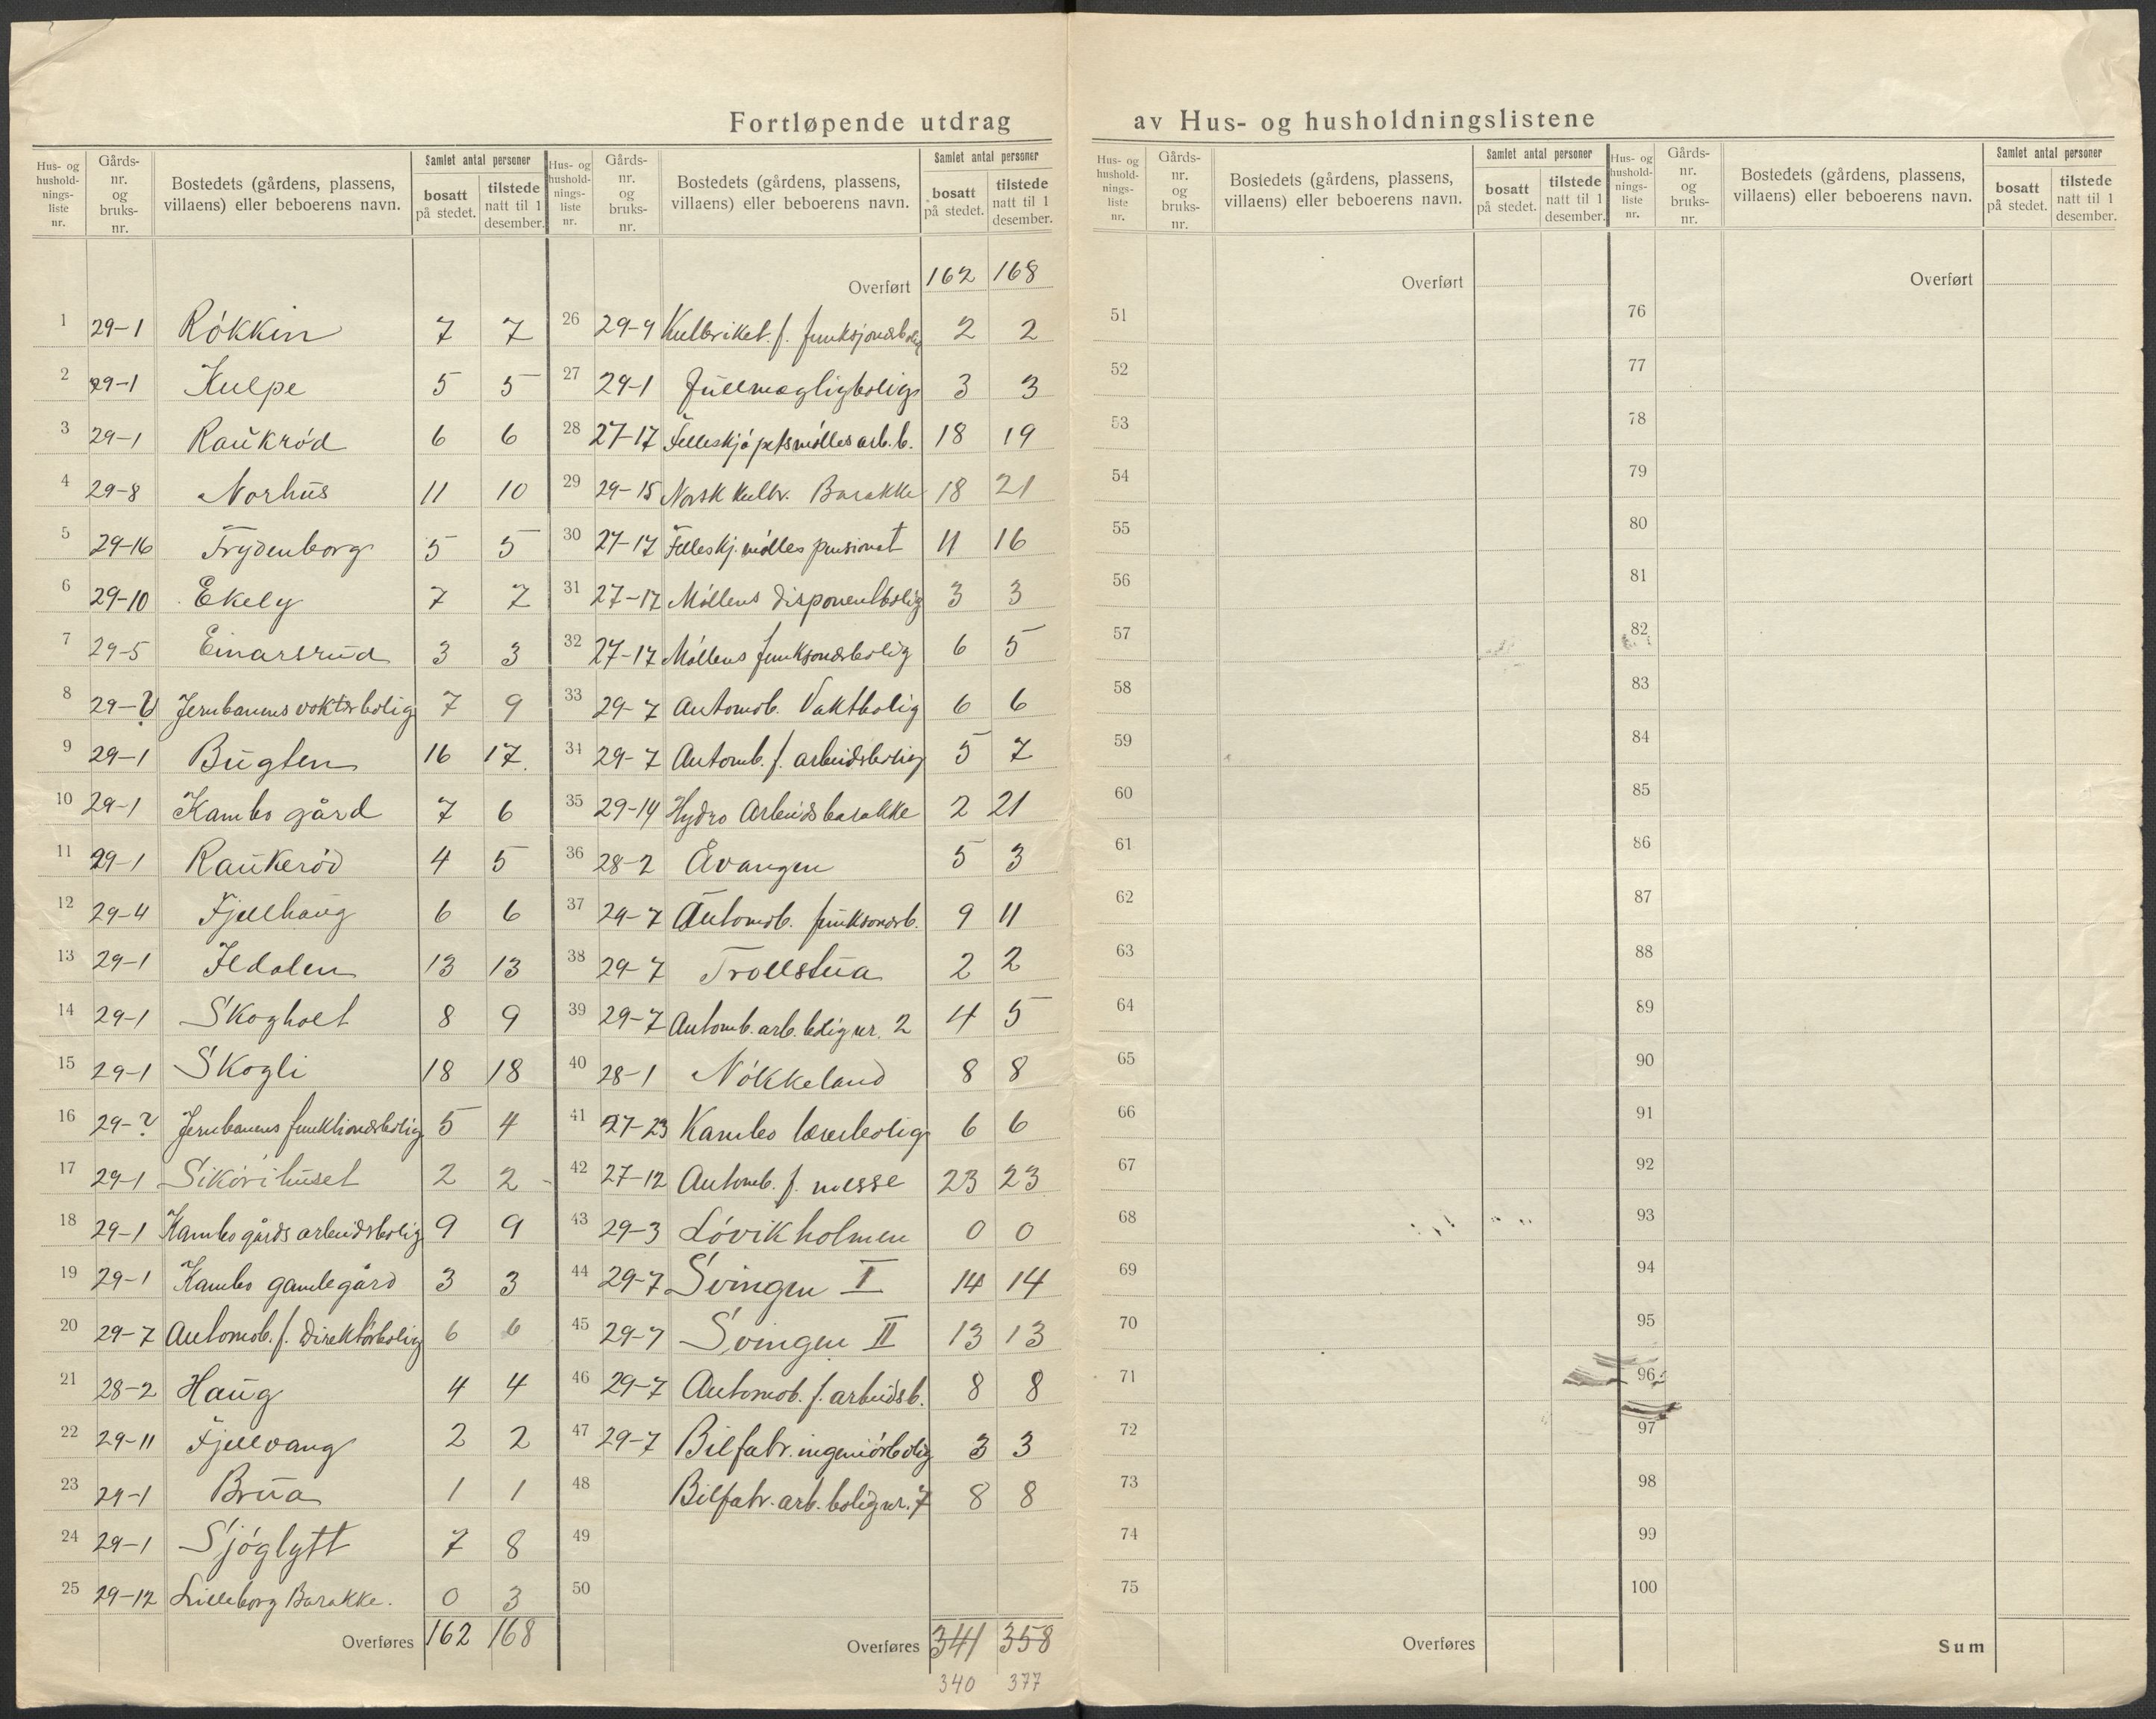 Fortløpende utdrag av Hus- og husholdningslistene
Hus- og husholdnings-liste nr. | Gårds-nr. og bruks-nr. | Bostedets (gårdens, plassens, villaens) eller beboerens navn. | Samlet antal personer | bosatt på stedet. | tilstede natt til 1 desember.
1 29-1 Rökkin 7 7
2 29-1 Kulpe 5 5
3 29-1 Raukröd 6 6
4 29-8 Norhus 11 10
5 29-16 Frydenborg 5 5
6 29-10 Ekely 7 7
7 29-5 Einarsrud 3 3
8 29-? Jernbanens vokterbolig 7 9
9 29-1 Bugten 16 17
10 29-1 Kambo gård 7 6
11 29-1 Raukeröd 4 5
12 29-4 Fjellhaug 6 6
13 29-1 Ildalen 13 13
14 29-1 Skogholt 8 9
15 29-1 Skogli 18 18
16 29-? Jernbanens funktionærbolig 5 4
17 29-1 Sikorihuset 2 2
18 29-1 Kambo gårds arbeidsbolig 9 9
19 29-1 Kambo gamlegård 3 3
20 29-7 Automob. f. Direktörbolig 6 6
21 28-2 Haug 4 4
22 29-11 Fjellvang 2 2
23 29-1 Brua 1 1
24 29-1 Sjöglytt 7 8
25 29-12 Lilleborg Barakke. 0 3
Overføres 162 168
Hus- og husholdnings-liste nr. | Gårds-nr. og bruks-nr. | Bostedets (gårdens, plassens, villaens) eller beboerens navn. | Samlet antal personer | bosatt på stedet. | tilstede natt til 1 desember.
Overført 162 168
26 29-9 Kullbriket. f. funksjonærbolig 2 2
27 29-1 Fullmægtigbolig 3 3
28 27-17 Felleskjöpets mölles arb. b. 18 19
29 29-15 Norsk Kullbr. Barakke 18 21
30 27-17 Felleskj. mölles pensionat 11 16
31 27-17 Möllens Disponentbolig 3 3
32 27-17 Möllens funksonærbolig 6 5
33 29-7 Automob. Vaktbolig 6 6
34 29-7 Automb. f. arbeidsbolig 5 7
35 29-14 Hydro Arbeidsbarakke 2 21
36 28-2 Åvangen 5 3
37 29-7 Automob. funksonærb. 9 11
38 29-7 Trollstua 2 2
39 29-7 Automb. arb. bolig nr. 2 4 5
40 28-1 Nökkeland 8 8
41 27-23 Kambo lærerbolig 6 6
42 27-12 Automb. f. messe 23 23
43 29-3 Lövikholmen 0 0
44 29-7 Svingen I 14 14
45 29-7 Svingen II 13 13
46 29-7 Automob. f. arbeidsb. 8 8
47 29-7 Bilfabr. ingeniörbolig 3 3
48 Bilfabr. arb. bolig nr. 7 8 8
49
50
Overføres 341 358
340 377
Hus- og husholdnings-liste nr. | Gårds-nr. og bruks-nr. | Bostedets (gårdens, plassens, villaens) eller beboerens navn. | Samlet antal personer | bosatt på stedet. | tilstede natt til 1 desember.
Overført
51
52
53
54
55
56
57
58
59
60
61
62
63
64
65
66
67
68
69
70
71
72
73
74
75
Overføres
Hus- og husholdnings-liste nr. | Gårds-nr. og bruks-nr. | Bostedets (gårdens, plassens, villaens) eller beboerens navn. | Samlet antal personer | bosatt på stedet. | tilstede natt til 1 desember.
Overført
76
77
78
79
80
81
82
83
84
85
86
87
88
89
90
91
92
93
94
95
96
97
98
99
100
Sum